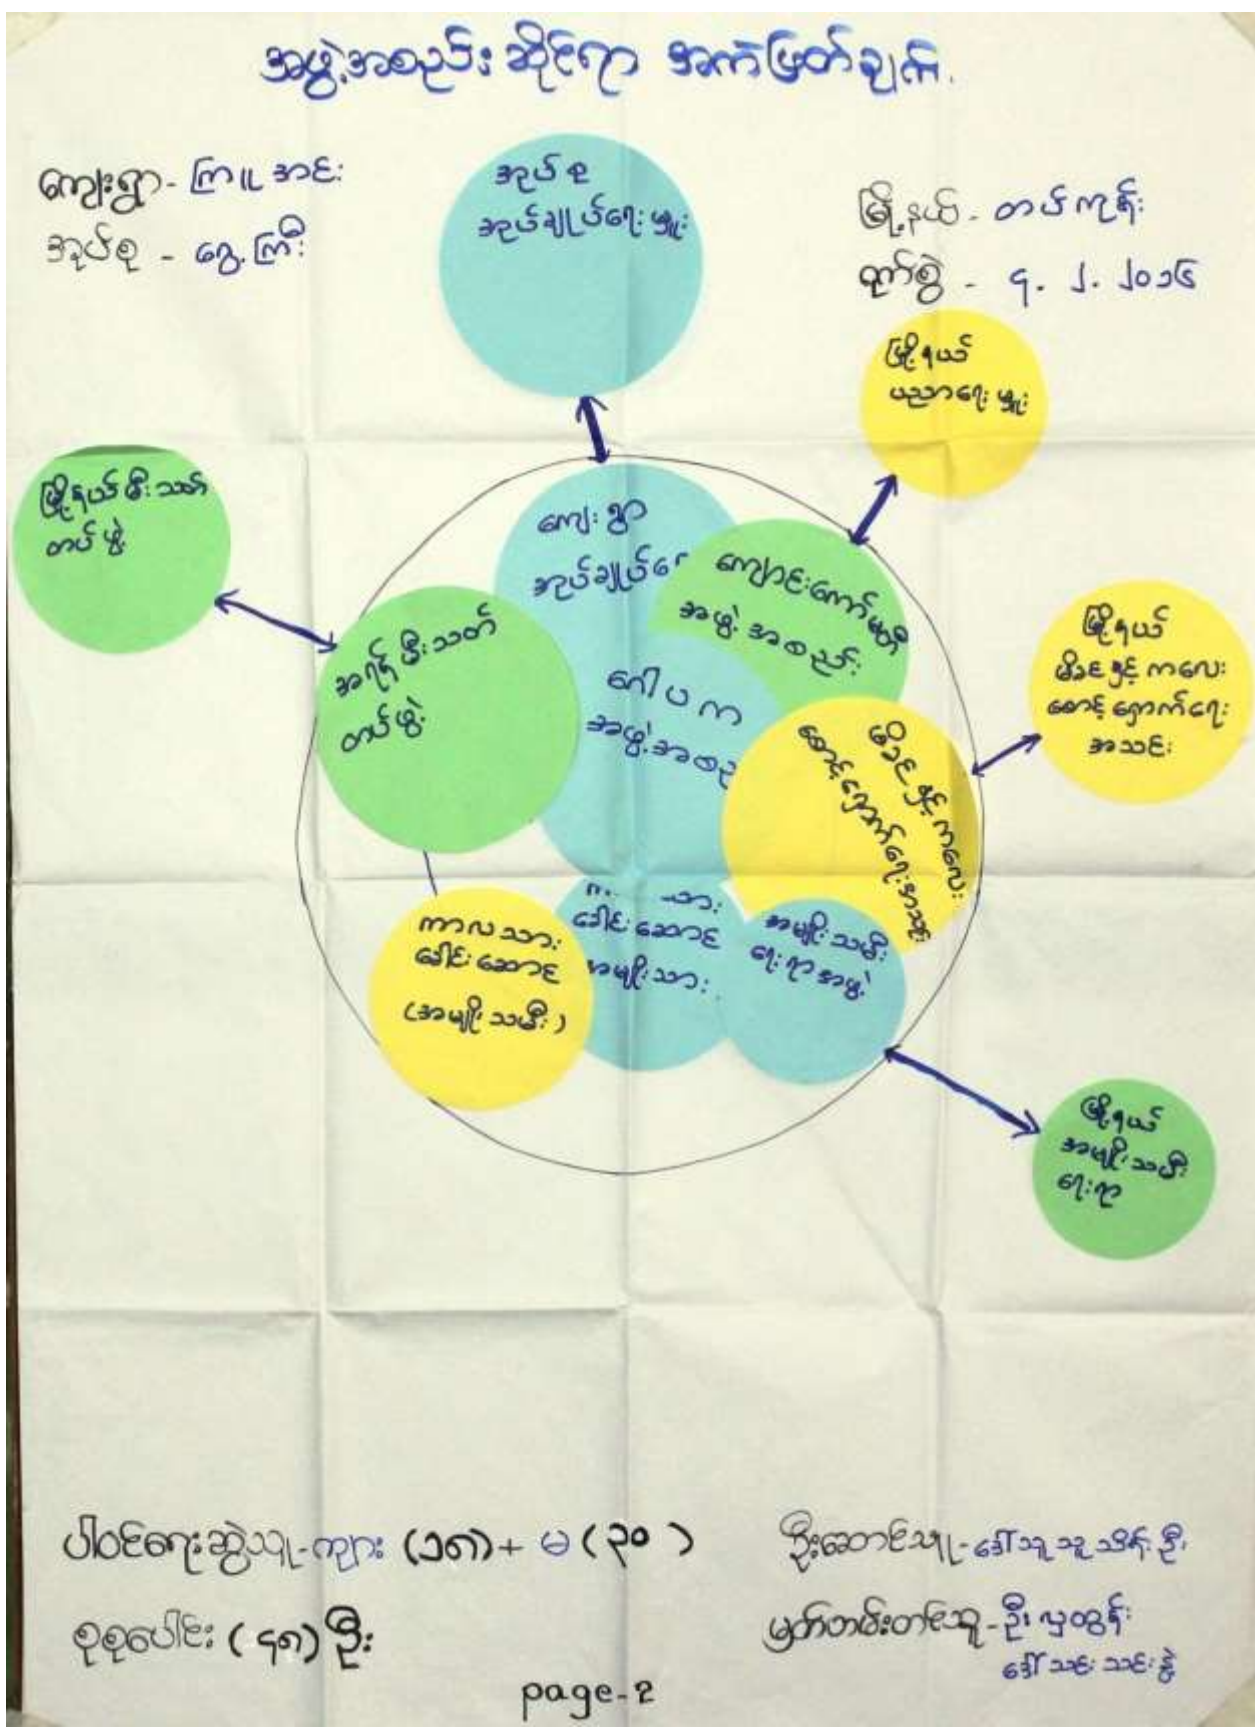 အဖွဲ့အစည်းဆိုင်ရာ အကဲဖြတ်ချက်.
ကျေးရွာ - ကြူအင်း
အုပ်စု - ရွှေကြီး
မြို့နယ် - တပ်ကုန်း
ရက်စွဲ - ၄. ၂. ၂၀၁၆
အုပ်စု
အုပ်ချုပ်ရေးမှူး
မြို့နယ်
ပညာရေးမှူး
မြို့နယ်မီးသတ်
တပ်ဖွဲ့
ကျေးရွာ
အုပ်ချုပ်ရေ
ကျောင်းကော်မတီ
အဖွဲ့အစည်း
အရန်မီးသတ်
တပ်ဖွဲ့
ဂေါပက
အဖွဲ့အစည
မိခင်နှင့်ကလေး
စောင့်ရှောက်ရေးအသင်း
မြို့နယ်
မိခင်နှင့်ကလေး
စောင့်ရှောက်ရေး
အသင်း
ကာလသား
ခေါင်းဆောင်
(အမျိုးသမီး)
သား
ခေါင်းဆောင်
အမျိုးသား
အမျိုးသမီး
ရေးရာအဖွဲ့
မြို့နယ်
အမျိုးသမီး
ရေးရာ
ပါဝင်ရေးဆွဲသူ - ကျား (၁၈) + မ (၃၀)
စုစုပေါင်း (၄၈) ဦး
ဦးဆောင်သူ - ဒေါ်သူသူသိန်းဦး
မှတ်တမ်းတင်သူ - ဦးလှထွန်း
ဒေါ်သင်းသင်းနွဲ့
page-2